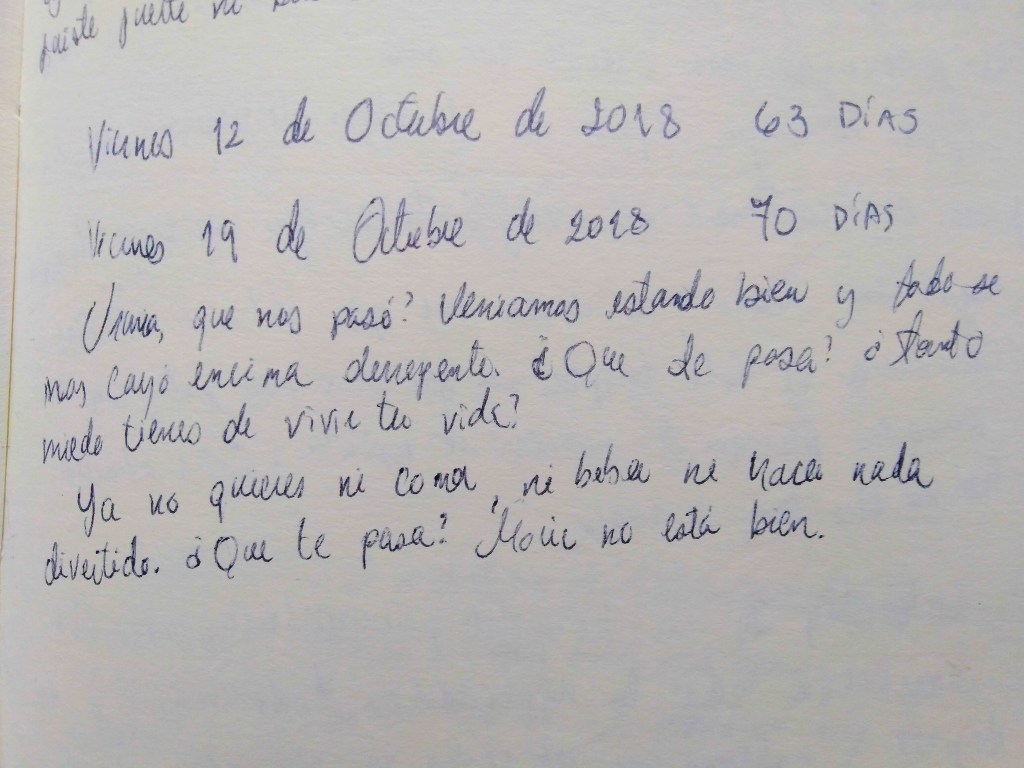 fuerte ni
Viernes 12 de Octubre de 2018 63 DÍAS
Viernes 19 de Octubre de 2018 70 DÍAS
que nos pasó? Veniamos estando bien y todo se
nos cayó encima derrepente. ¿Que te pasa? ¿Tanto
miedo tienes de vivir tu vida?
Ya no quieres ni comer, ni beber ni hacer nada
divertido. ¿Que te pasa? Morir no está bien.